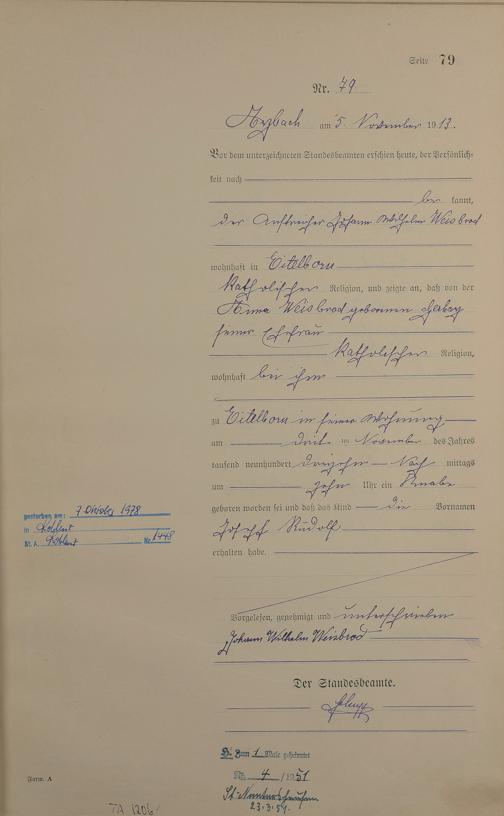 Seite 79
Nr. 79
Arzbach am 5. November 1913.
Vor dem unterzeichneten Standesbeamten erschien heute, der Persönlich-
keit nach
be kannt,
der Anstreicher Johann Wilhelm Weisbrod
wohnhaft in Eitelborn
katholischer Religion, und zeigte an, daß von der
Anna Weisbrod geborenen
seiner Ehefrau
katholischer Religion,
wohnhaft bei ihm
zu Eitelborn in seiner Wohnung
am November des Jahres
tausend neunhundert dreizehn Nach mittags
um zehn Uhr ein Knabe
geboren worden sei und daß das Kind die Vornamen
Josef Rudolf
erhalten habe.
gestorben am: 7 Oktober 1978
in Koblenz
St. A. Koblenz Nr. 1448
Vorgelesen, genehmigt und unterschrieben
Johann Wilhelm Weisbrod
Der Standesbeamte.
Zum 1 Male geheiratet
Nr. 4 / 1951
23.3.51.
Form. A
TA 1206